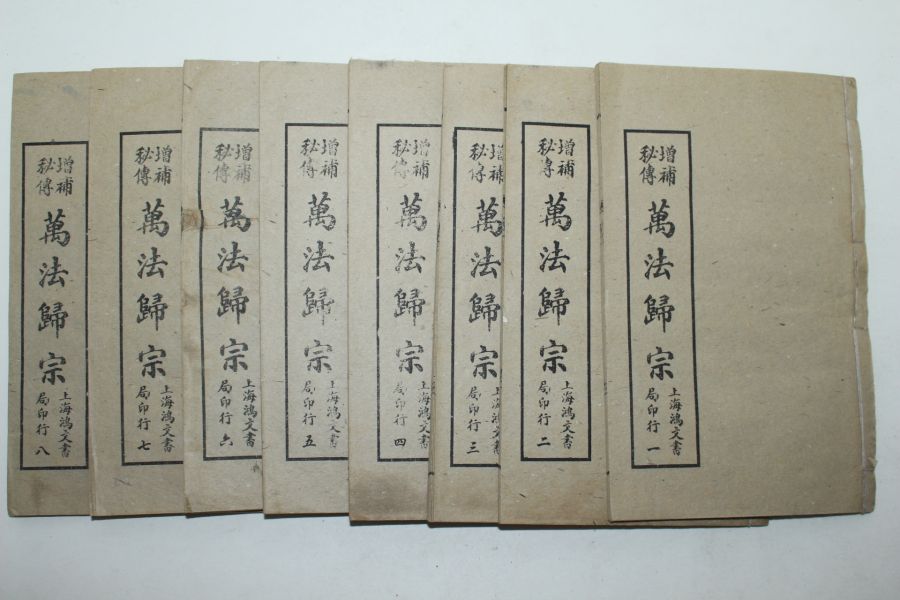 增補
秘傳
萬法歸宗
上海鴻文書
局印行 一
增補
秘傳
萬法歸宗
上海鴻文書
局印行 二
增補
秘傳
萬法歸宗
上海鴻文書
局印行 三
增補
秘傳
萬法歸宗
上海鴻文書
局印行 四
增補
秘傳
萬法歸宗
上海鴻文書
局印行 五
增補
秘傳
萬法歸宗
上海鴻文書
局印行 六
增補
秘傳
萬法歸宗
上海鴻文書
局印行 七
增補
秘傳
萬法歸宗
上海鴻文書
局印行 八